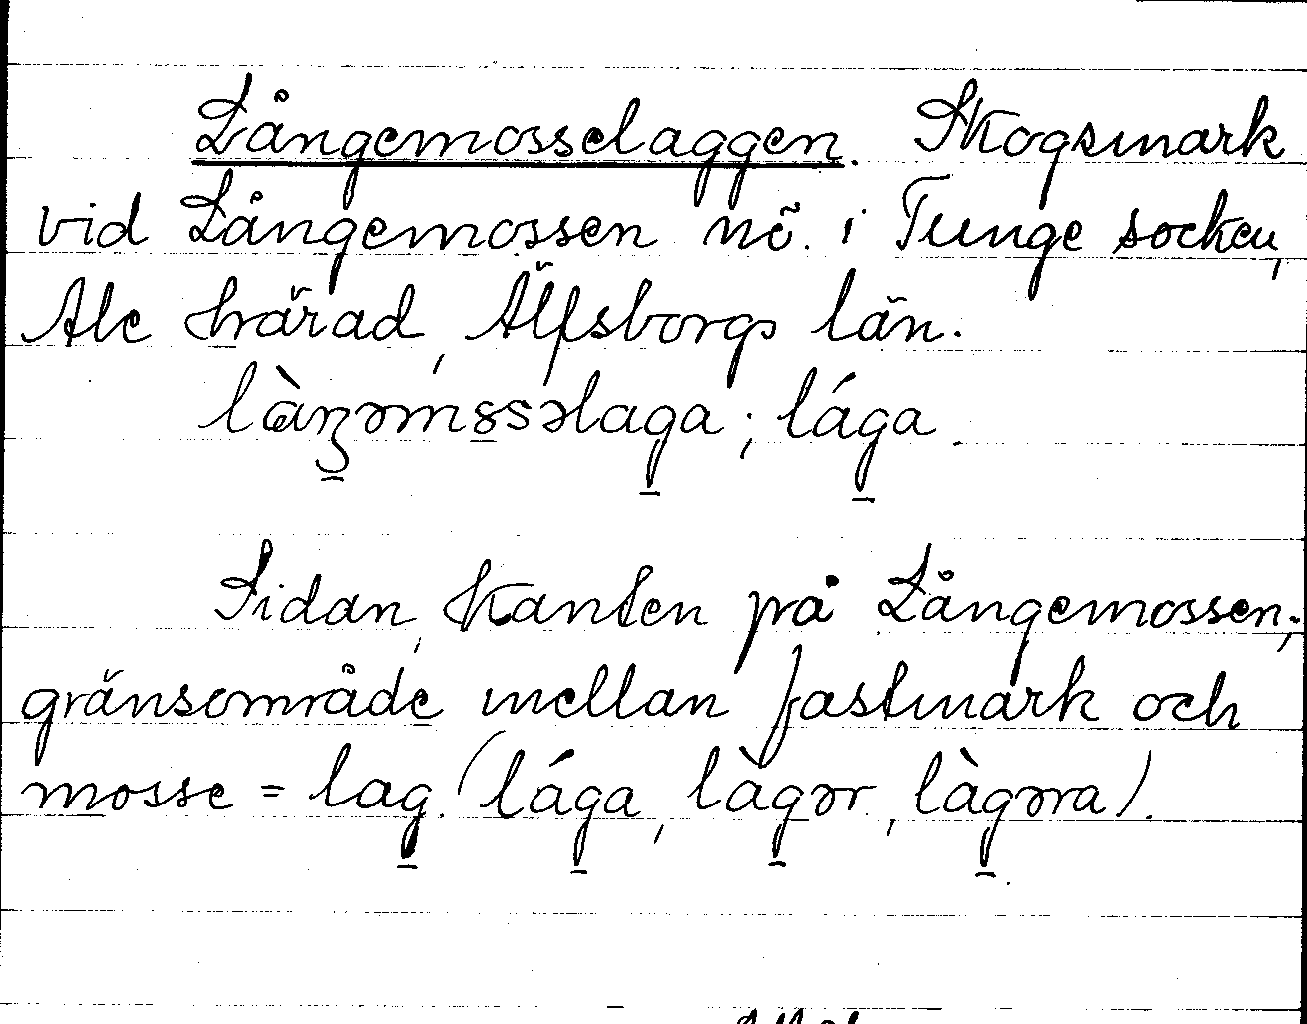 Långemosselaggen. Skogsmark
vid Långemossen nö. i Tunge socken,
Ale härad, Älfsborgs län.
làŋ̱əms̱səlag̱a; lág̱a.
Sidan, kanten på Långemossen;
gränsområde mellan fastmark och
mosse = lag̱. (lág̱a, làg̱ər, làg̱əra).